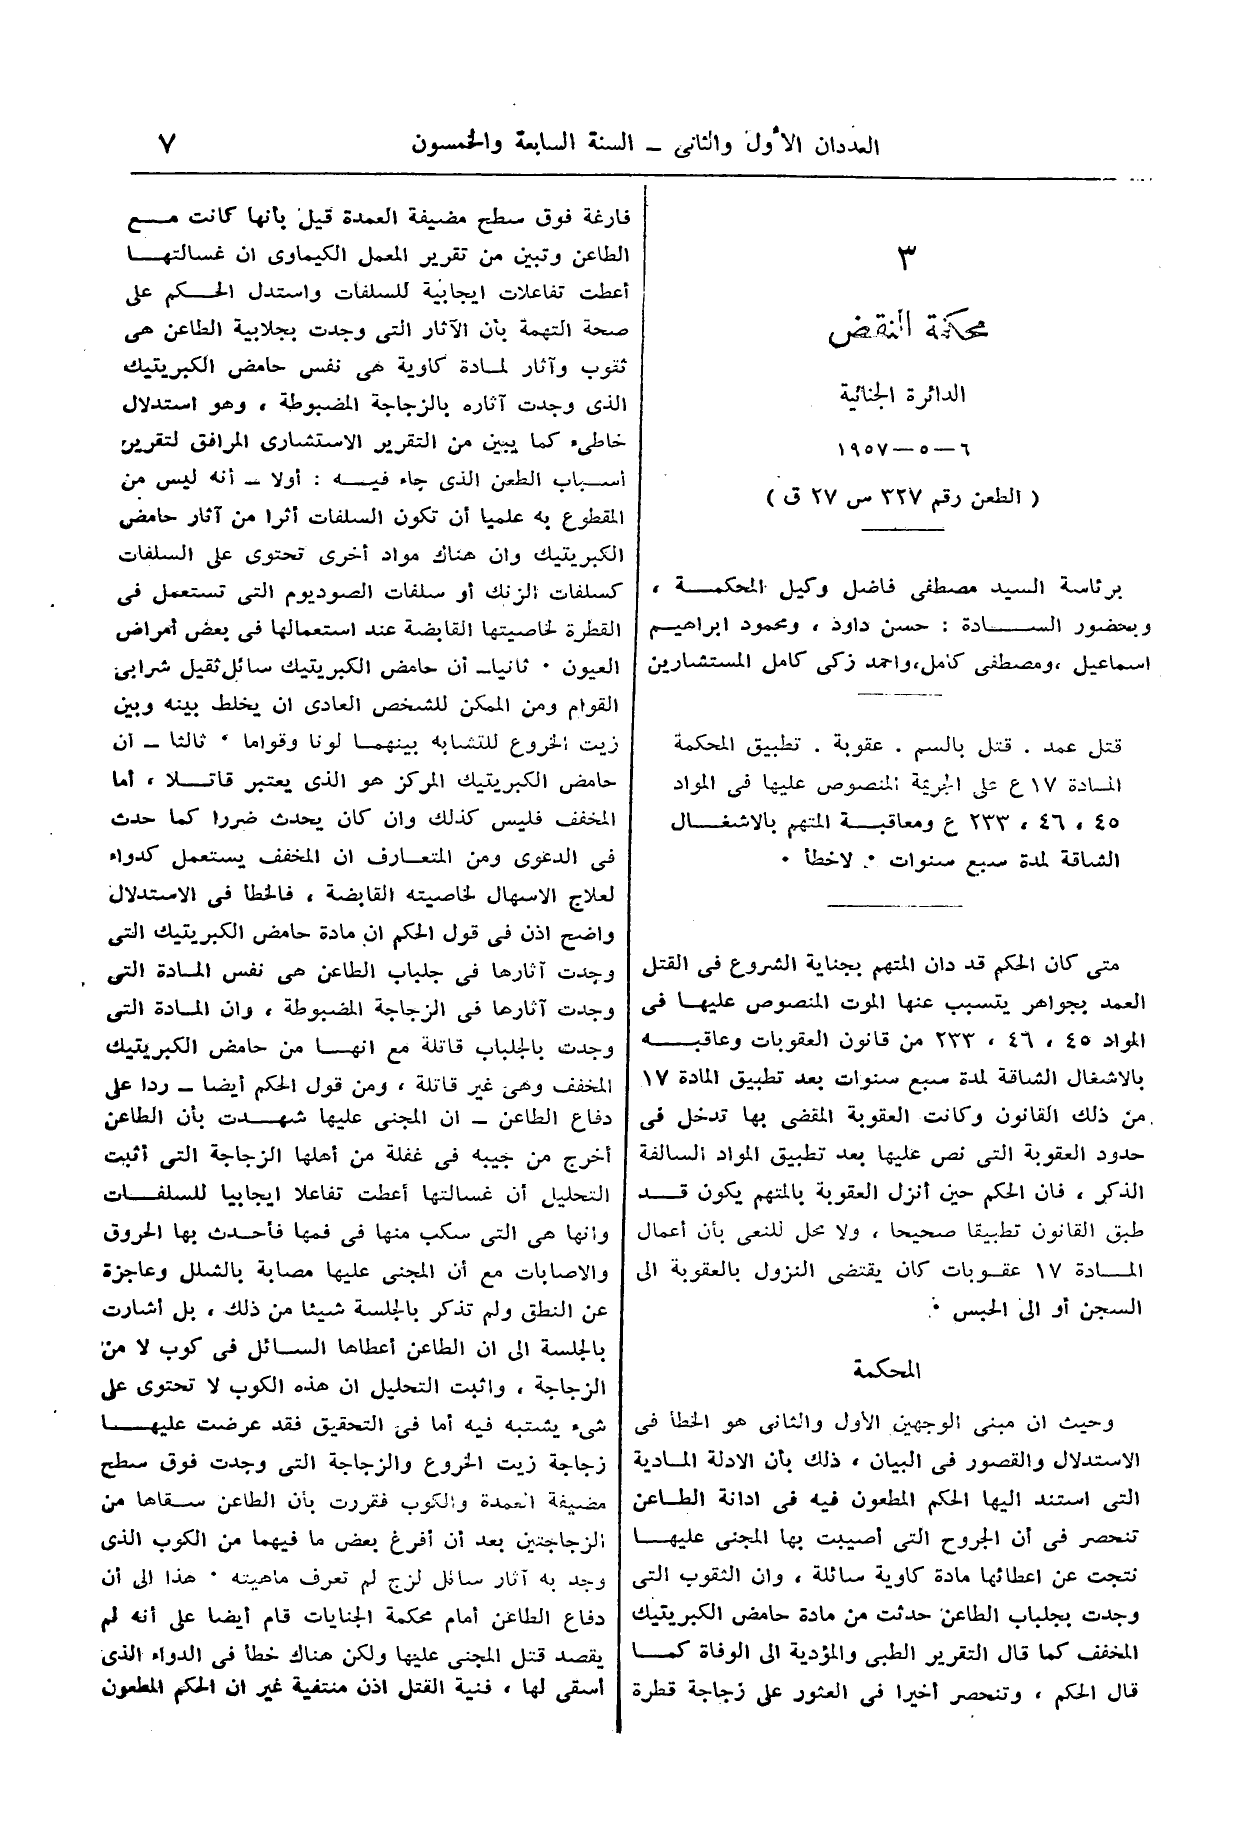 العددان الأول والثانى – السنة السابعة والخمسون
٧
٣
محكمة النقض
الدائرة الجنائية
٦ – ٥ – ١٩٥٧
( الطعن رقم ٣٢٧ س ٢٧ ق )
برئاسة السيد مصطفى فاضل وكيل المحكمة ،
وبحضور السادة : حسن داود ، ومحمود ابراهيم
اسماعيل ،ومصطفى كامل،واحمد زكى كامل المستشارين
قتل عمد . قتل بالسم . عقوبة . تطبيق المحكمة
المادة ١٧ ع على الجريمة المنصوص عليها فى المواد
٤٥ ، ٤٦ ، ٢٣٣ ع ومعاقبة المتهم بالاشغال
الشاقة لمدة سبع سنوات . لاخطأ .
متى كان الحكم قد دان المتهم بجناية الشروع فى القتل
العمد بجواهر يتسبب عنها الموت المنصوص عليها فى
المواد ٤٥ ، ٤٦ ، ٢٣٣ من قانون العقوبات وعاقبه
بالاشغال الشاقة لمدة سبع سنوات بعد تطبيق المادة ١٧
من ذلك القانون وكانت العقوبة المقضى بها تدخل فى
حدود العقوبة التى نص عليها بعد تطبيق المواد السالفة
الذكر ، فان الحكم حين أنزل العقوبة بالمتهم يكون قد
طبق القانون تطبيقا صحيحا ، ولا محل للنعى بأن أعمال
المادة ١٧ عقوبات كان يقتضى النزول بالعقوبة الى
السجن أو الى الحبس .
المحكمة
وحيث ان مبنى الوجهين الأول والثانى هو الخطأ فى
الاستدلال والقصور فى البيان ، ذلك بأن الادلة المادية
التى استند اليها الحكم المطعون فيه فى ادانة الطاعن
تنحصر فى أن الجروح التى أصيبت بها المجنى عليها
نتجت عن اعطائها مادة كاوية سائلة ، وان الثقوب التى
وجدت بجلباب الطاعن حدثت من مادة حامض الكبريتيك
المخفف كما قال التقرير الطبى والمؤدية الى الوفاة كما
قال الحكم ، وتنحصر أخيرا فى العثور على زجاجة قطرة
فارغة فوق سطح مضيفة العمدة قيل بأنها كانت مع
الطاعن وتبين من تقرير المعمل الكيماوى ان غسالتها
أعطت تفاعلات ايجابية للسلفات واستدل الحكم على
صحة التهمة بأن الآثار التى وجدت بجلابية الطاعن هى
ثقوب وآثار لمادة كاوية هى نفس حامض الكبريتيك
الذى وجدت آثاره بالزجاجة المضبوطة ، وهو استدلال
خاطىء كما يبين من التقرير الاستشارى المرافق لتقرير
أسباب الطعن الذى جاء فيه : أولا – أنه ليس من
المقطوع به علميا أن تكون السلفات أثرا من آثار حامض
الكبريتيك وان هناك مواد أخرى تحتوى على السلفات
كسلفات الزنك أو سلفات الصوديوم التى تستعمل فى
القطرة لخاصيتها القابضة عند استعمالها فى بعض أمراض
العيون . ثانيا– أن حامض الكبريتيك سائل ثقيل شرابى
القوام ومن الممكن للشخص العادى ان يخلط بينه وبين
زيت الخروع للتشابه بينهما لونا وقواما . ثالثا – أن
حامض الكبريتيك المركز هو الذى يعتبر قاتلا ، أما
المخفف فليس كذلك وان كان يحدث ضررا كما حدث
فى الدعوى ومن المتعارف ان المخفف يستعمل كدواء
لعلاج الاسهال لخاصيته القابضة ، فالخطأ فى الاستدلال
واضح اذن فى قول الحكم ان مادة حامض الكبريتيك التى
وجدت آثارها فى جلباب الطاعن هى نفس المادة التى
وجدت آثارها فى الزجاجة المضبوطة ، وان المادة التى
وجدت بالجلباب قاتلة مع انها من حامض الكبريتيك
المخفف وهى غير قاتلة ، ومن قول الحكم أيضا – ردا على
دفاع الطاعن – ان المجنى عليها شهدت بأن الطاعن
أخرج من جيبه فى غفلة من أهلها الزجاجة التى أثبت
التحليل أن غسالتها أعطت تفاعلا ايجابيا للسلفات
وانها هى التى سكب منها فى فمها فأحدث بها الحروق
والاصابات مع أن المجنى عليها مصابة بالشلل وعاجزة
عن النطق ولم تذكر بالجلسة شيئا من ذلك ، بل أشارت
بالجلسة الى ان الطاعن أعطاها السائل فى كوب لا من
الزجاجة ، واثبت التحليل ان هذه الكوب لا تحتوى على
شىء يشتبه فيه أما فى التحقيق فقد عرضت عليها
زجاجة زيت الخروع والزجاجة التى وجدت فوق سطح
مضيفة العمدة والكوب فقررت بأن الطاعن سقاها من
الزجاجتين بعد أن أفرغ بعض ما فيهما من الكوب الذى
وجد به آثار سائل لزج لم تعرف ماهيته . هذا الى أن
دفاع الطاعن أمام محكمة الجنايات قام أيضا على أنه لم
يقصد قتل المجنى عليها ولكن هناك خطأ فى الدواء الذى
أسقى لها ، فنية القتل اذن منتفية غير ان الحكم المطعون